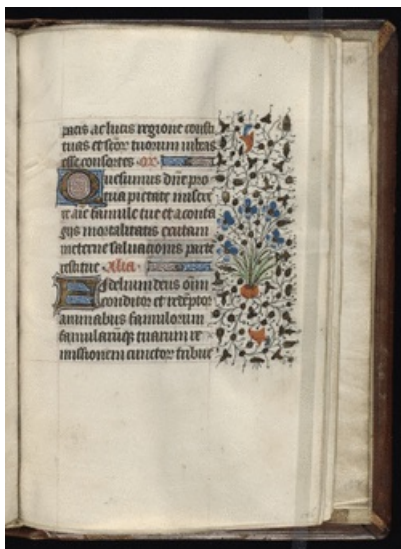 pacis ac lucis regione constı
tuas et scōr tuorum iubeas
esse consortes or
Quesumus dn̄e pro
tua pietate misere
re aīe famule tue et a conta
gijs mortalitatis exutam
in eterne saluacionis parte
restitue Alia
Fidelium deus oīm
conditor et redēptor
animabus famulorum
famularūqꝫ tuarum re
missionem cunctor tribue